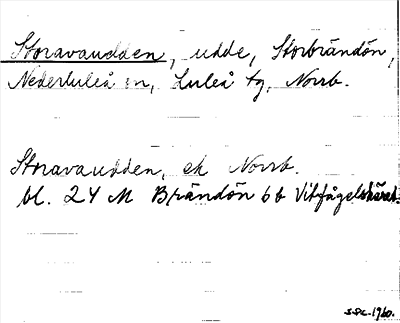 Storavaudden, udde, Storbrändön,
Nederluleå sn, Luleå tg, Norrb.
Storavaudden, ek Norrb.
bl. 24 M Brändön 6 b Vitfågelskäret
1960.